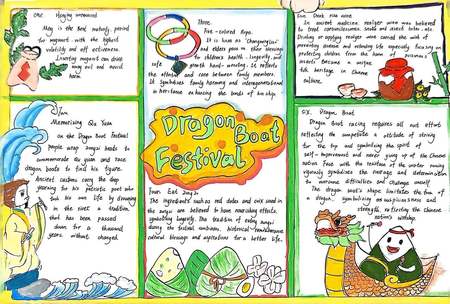 One Hanging wormwood
May is the best maturity period
for mugwort with the highest
volatility and oil activeness.
Inserting mugwort can drive
away evil and avoid
harm.
Two
Memorizing Qu Yuan
on the Dragon Boat Festival
people wrap zongzi boats to
commemorate Qu Yuan and race
dragon boats to find his figure.
Ancient customs carry the deep
yearning for his patriotic poet who
took his own life by drowning
in the river a tradition
that has been passed
down for a thousand
years without changed.
Three
Five-colored Rope.
It is known as "Changming lu"
and elders pass on their blessings
to children's health, longevity, and
safe growth hand-weaving. It reflects
the attention and care between family members.
It symbolizes family harmony and intergenerational
inheritance enhancing the bonds of kinship
Dragon Boat
Festival
Four Eat Zongzi
The ingredients such as red dates and coix seed in
the zongzi are believed to have nourishing effects,
symbolizing longevity. The tradition of eating zongzi
during the festival embraces, historical remembrance
cultural lineage and aspirations for a better life.
Five Drink rice wine
In ancient medicine realgar wine was believed
to treat convulsions, snake and insect bites, etc
Drinking realgar realgar wine carried the wish of
preventing disease and extending life especially focusing on
protecting children from the harm of poisonous
insects became a unique
folk heritage in Chinese
culture.
Six Dragon Boat
Dragon Boat racing requires all out effort
reflecting the competitive attitude of striving
for the top and symbolizing the spirit of
self-improvement and never giving up of the Chinese
nation. Face with the resistance of the water rowing
vigorously symbolizes the courage and determination
to overcome difficulties and challenge oneself
The dragon boat's shape imitates the form
of a dragon, symbolizing an auspiciousness and
strength, reflecting the Chinese
nation's worship